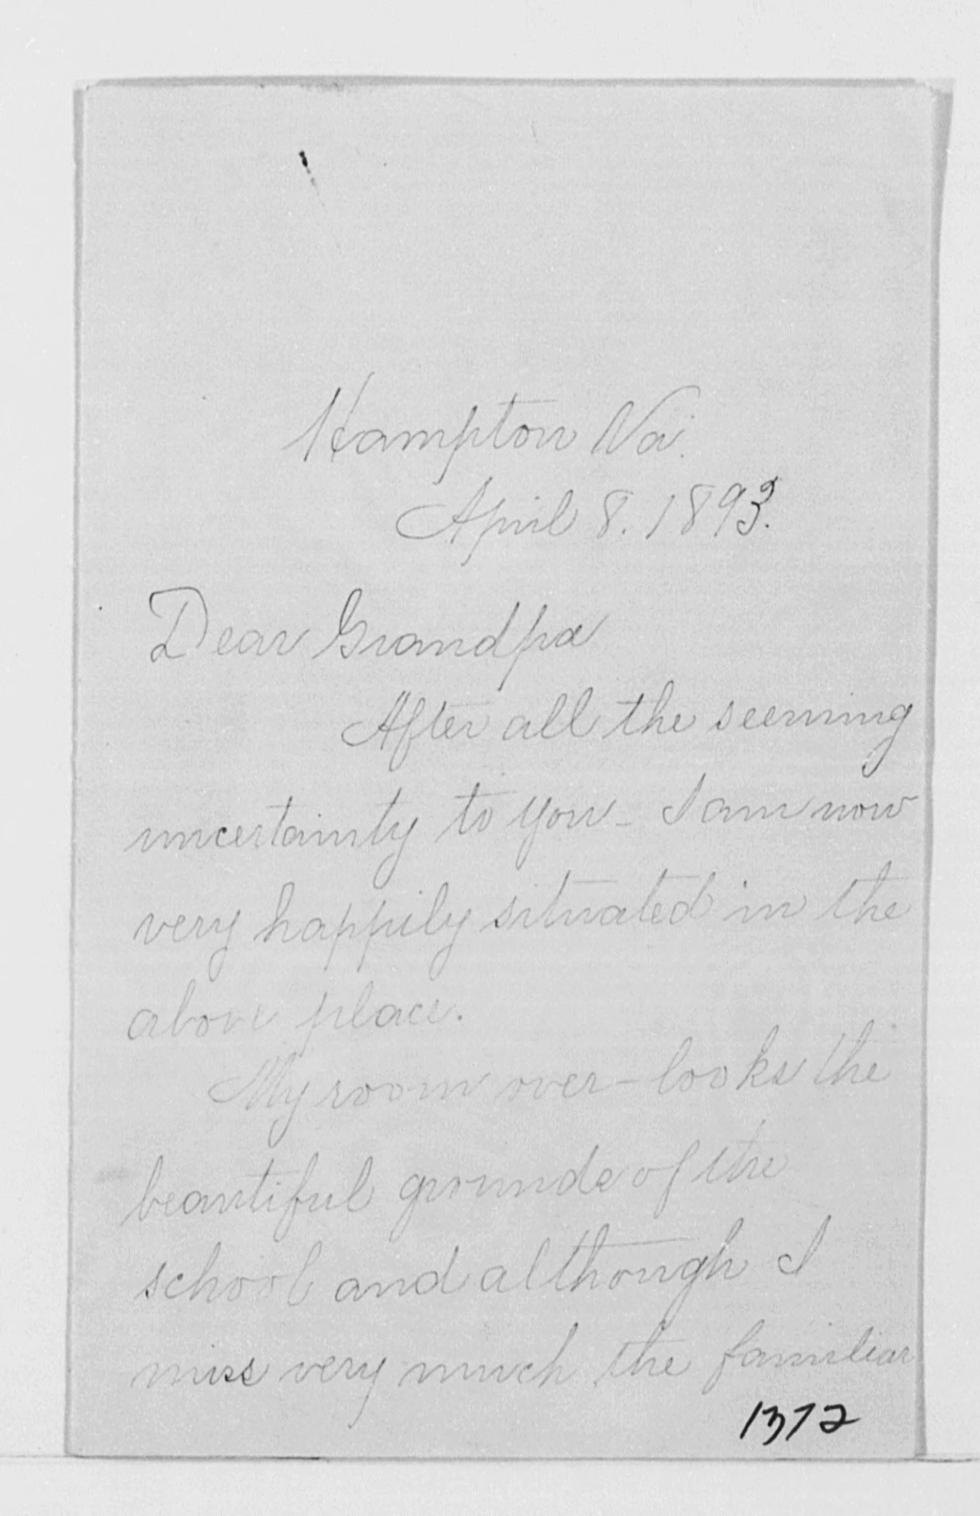 Hampton Va.
April 8. 1893.
Dear Grandpa
After all the seeming
uncertainty to you - I am now
very happily situated in the
above place.
My room over-looks the
beautiful grounds of the
school and although I
miss very much the familiar
1372